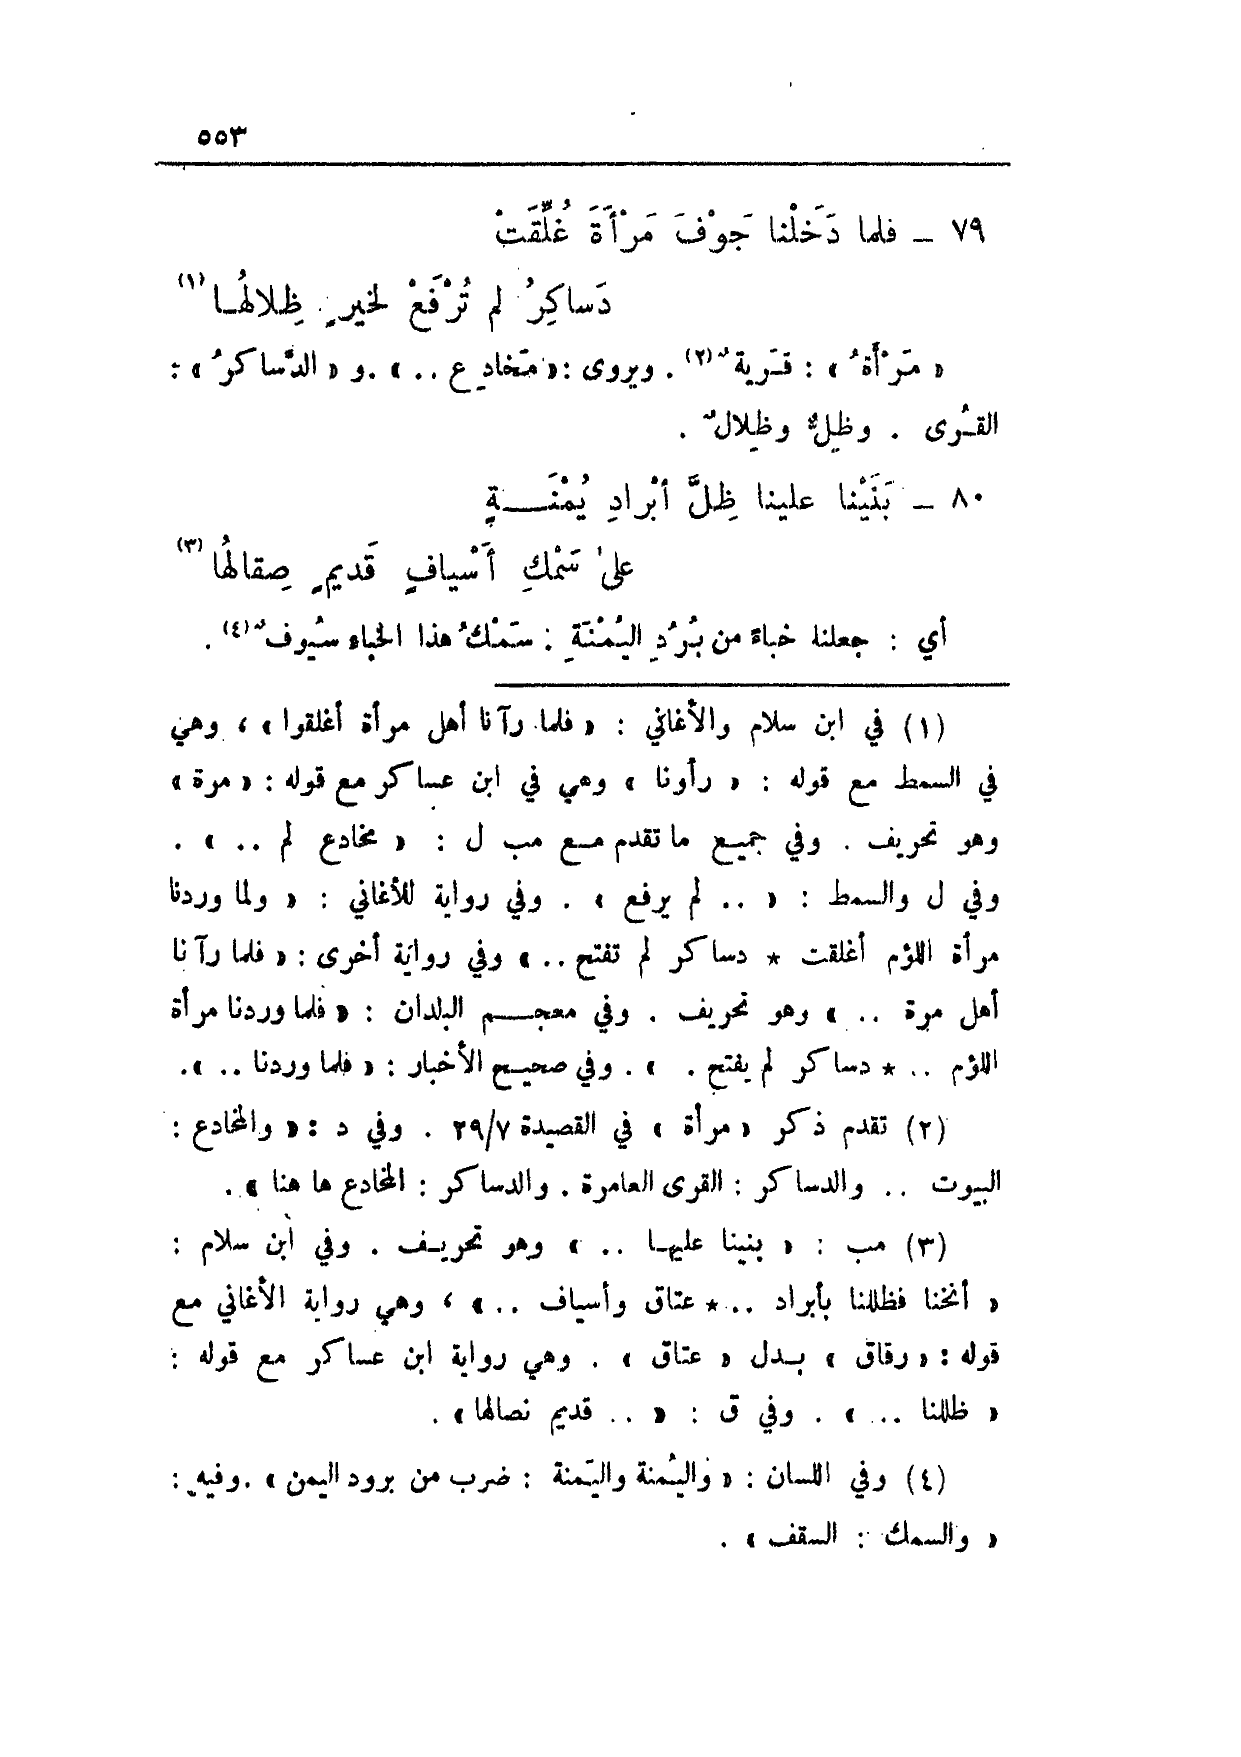 ٥٥٣
٧٩ ــ فلما دَخَلْنا جَوْفَ مَرْأَةَ غُلِّقَتْ
دَساكِرُ لم تُرْفَعْ لخيرٍ ظِلالهُـا (١)
« مَرْأَةُ » : قَرية ٌ(٢) . ويروى :« مَخادِع .. » .و « الدَّساكرُ » :
القُـرى . وظِلٌّ وظِلال ٌ .
٨٠ ــ بَنَيْنا علينا ظِلَّ أبْرادِ يُمْنَــةٍ
على سَمْكِ أَسْيافٍ قَديمٍ صِقالهُا (٣)
أي : جعلنا خباءً من بُرُدِ اليُمْنَةِ : سَمْكُ هذا الخباء سُيوف ٌ(٤) .
(١) في ابن سلام والأغاني : « فلما رآنا أهل مرأة أغلقوا » ، وهي
في السمط مع قوله : « رأونا » وهي في ابن عساكر مع قوله : « مرة »
وهو تحريف . وفي جميـع ما تقدم مـع مب ل : « مخادع لم .. » .
وفي ل والسمط : « .. لم يرفع » . وفي رواية للأغاني : « ولما وردنا
مرأة اللؤم أغلقت * دساكر لم تفتح .. » وفي رواية أخرى : « فلما رآنا
أهل مرة .. » وهو تحريف . وفي معجــم البلدان : « فلما وردنا مرأة
اللؤم .. * دساكر لم يفتح . » . وفي صحيـح الأخبار : « فلما وردنا .. ».
(٢) تقدم ذكر « مرأة » في القصيدة ٢٩/٧ . وفي د : « والمخادع :
البيوت .. والدساكر : القرى العامرة . والدساكر : المخادع ها هنا » .
(٣) مب : « بنينا عليهـا .. » وهو تحريـف . وفي ابن سلام :
« أنخنا فظللنا بأبراد .. * عتاق وأسياف .. » ، وهي رواية الأغاني مع
قوله : « رقاق » بـدل « عتاق » . وهي رواية ابن عساكر مع قوله :
« ظللنا .. » . وفي ق : « .. قديم نصالها » .
(٤) وفي اللسان : « واليُمنة واليَمنة : ضرب من برود اليمن » .وفيه :
« والسمك : السقف » .